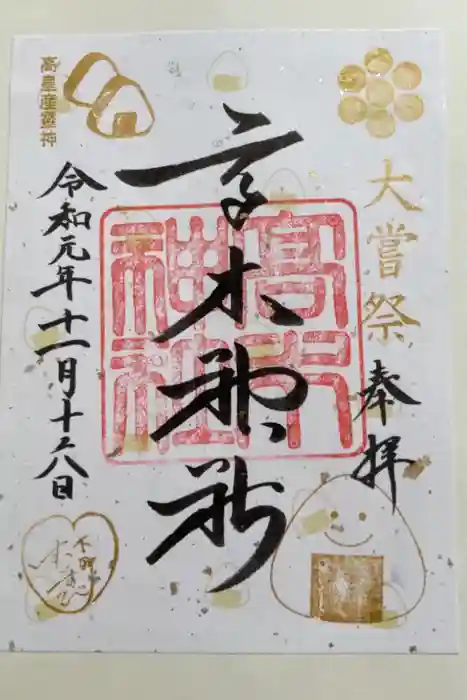 大嘗祭
奉拝
高木神社
高木神社
令和元年十一月十六日
高皇産霊神